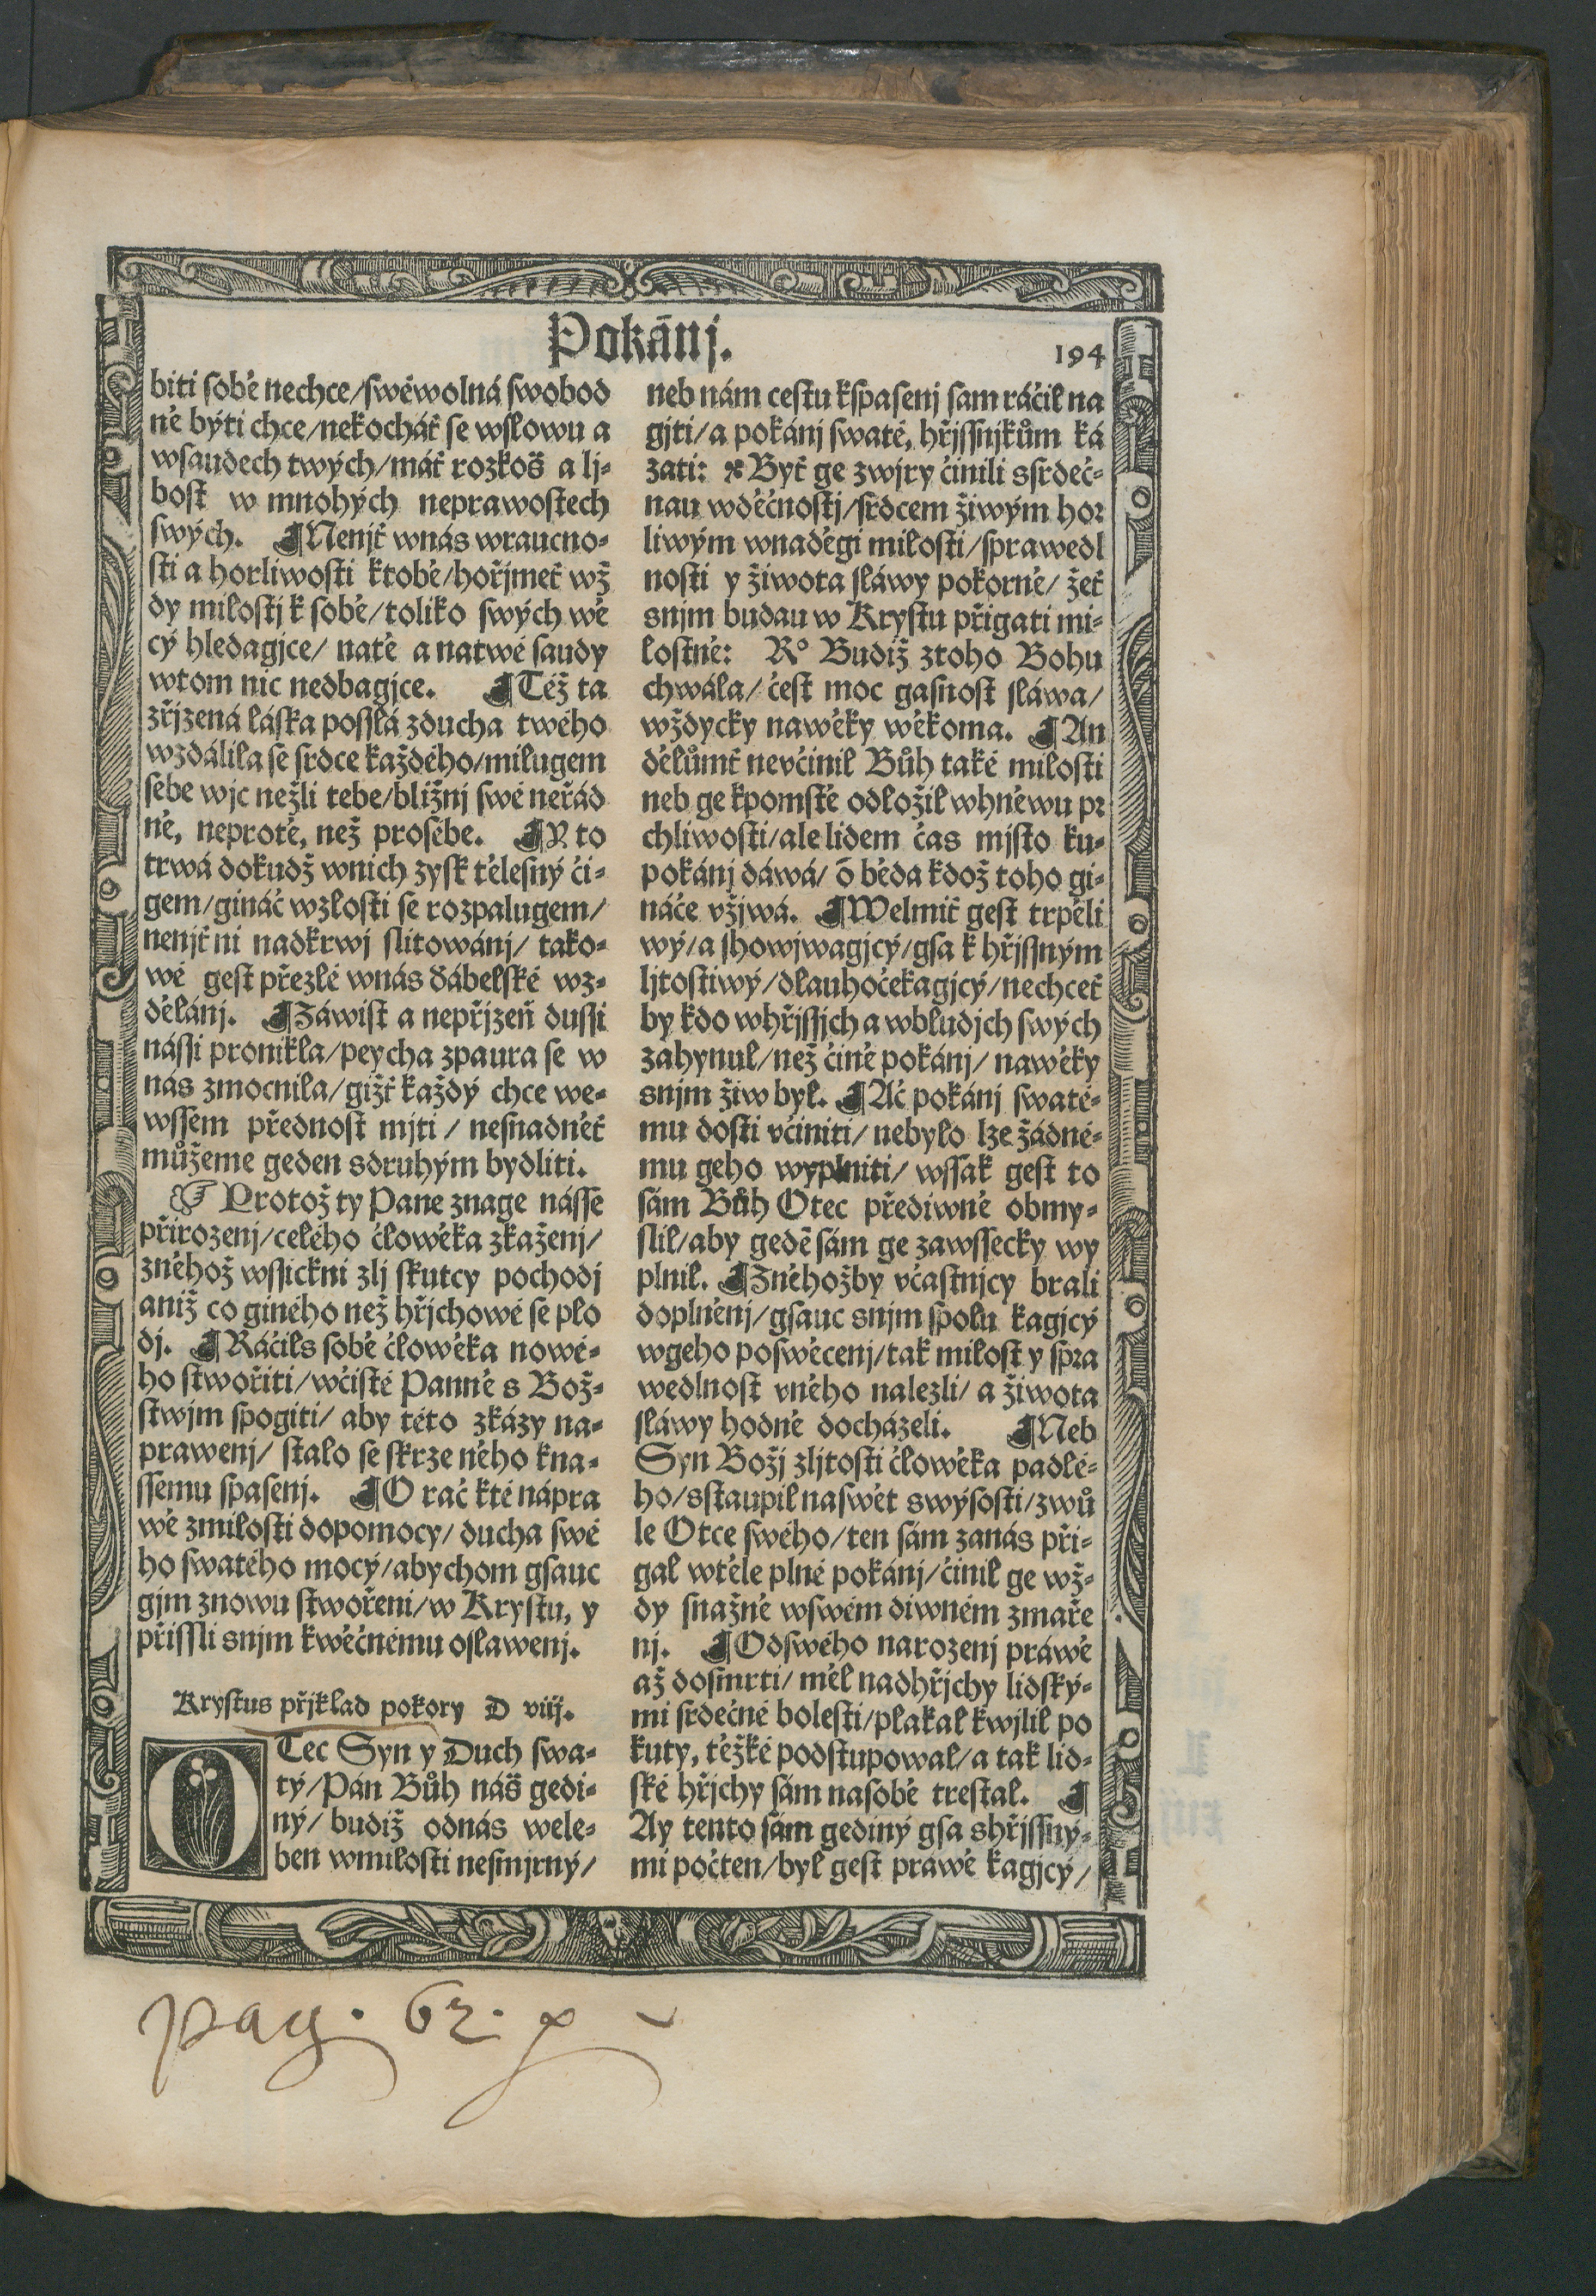 Pokánj.
194
biti sobě nechce/swéwolná swobod
ně býti chce/nekocháť se wslowu a
wsaudech twých/máť rozkoš a lj-
bost w mnohých neprawostech
swých. ¶Nenjť wnás wraucno-
sti a horliwosti ktobě/hořjmeť wž
dy milostj k sobě/toliko swých wě
cý hledagjce/ natě a natwé saudy
wtom nic nedbagjce. ¶Též ta
zřjzená láska posslá zducha twého
wzdálila se srdce každého/milugem
sebe wjc nežli tebe/bližnj swé neřád
ně, neprotě, než prosebe. ¶Y to
trwá dokudž wnich zysk tělesný či-
gem/gináč wzlosti se rozpalugem/
nenjť ni nadkrwj slitowánj/ tako-
wé gest přezlé wnás ďábelské wz-
dělánj. ¶Záwist a nepřjzeň dussi
nássi pronikla/peycha zpaura se w
nás zmocnila/gižť každý chce we-
wssem přednost mjti / nesnadněť
můžeme geden sdruhým bydliti.
☞ Protož ty Pane znage násse
přirozenj/celého člowěka zkaženj/
zněhož wssickni zlj skutcy pochodj
aniž co giného než hřjchowé se plo
dj. ¶Ráčils sobě člowěka nowé-
ho stwořiti/wčisté Panně s Bož-
stwjm spogiti/ aby této zkázy na-
prawenj/ stalo se skrze něho kna-
ssemu spasenj. ¶O rač kté nápra
wě zmilosti dopomocy/ ducha swé
ho swatého mocý/abychom gsauc
gjm znowu stwořeni/w Krystu, y
přissli snjm kwěčnému oslawenj.
Krystus přjklad pokory D viij.
OTec Syn y Duch swa-
tý/Pán Bůh náš gedi-
ný/ budiž odnás wele-
ben wmilosti nesmjrný/
neb nám cestu kspasenj sam ráčil na
gjti/a pokánj swaté, hřjssnjkům ká
zati: Byť ge zwjry činili ssrdeč-
nau wděčnostj/srdcem žiwým hor
liwým wnaděgi milosti/sprawedl
nosti y žiwota sláwy pokorně/ žeť
snjm budau w Krystu přigati mi-
lostně: R° Budiž ztoho Bohu
chwála/ čest moc gasnost sláwa/
wždycky nawěky wěkoma. ¶An
dělůmť nevčinil Bůh také milosti
neb ge kpomstě odložil whněwu pr
chliwosti/ale lidem čas mjsto ku-
pokánj dáwá/ ó běda kdož toho gi-
náče vžjwá. ¶Welmiť gest trpěli
wý/a showjwagjcý/gsa k hřjssným
ljtostiwý/dlauhočekagjcý/nechceť
by kdo whřjssjch a wbludjch swých
zahynul/než čině pokánj/ nawěky
snjm žiw byl. ¶Ač pokánj swaté-
mu dosti včiniti/ nebylo lze žádné-
mu geho wyplniti/ wssak gest to
sám Bůh Otec předíwně obmy-
slil/aby gedē sám ge zawssecky wy
plnil. ¶Zněhožby včastnjcy brali
doplněnj/gsauc snjm spolu kagjcý
wgeho poswěcenj/tak milost y spra
wedlnost vněho nalezli/ a žiwota
sláwy hodně docházeli. ¶Neb
Syn Božj zljtosti člowěka padlé-
ho/sstaupil naswět swýsosti/zwů
le Otce swého/ten sám zanás při-
gal wtěle plné pokánj/činil ge wž-
dy snažně wswém diwném zmaře
nj. ¶Odswého narozenj práwě
až dosmrti/ měl nadhřjchy lidský-
mi srdečné bolesti/plakal kwjlil po
kuty, těžké podstupowal/a tak lid-
ské hřjchy sám nasobě trestal. ¶
Ay tento sám gediný gsa shřjssný-
mi počten/byl gest práwě kagjcý/
pag. 62.